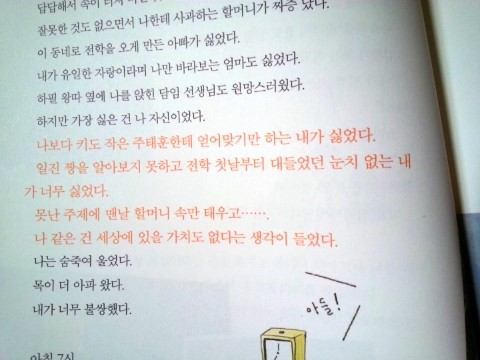 답답해서 속이 터져
잘못한 것도 없으면서 나한테 사과하는 할머니가 짜증 났다.
이 동네로 전학을 오게 만든 아빠가 싫었다.
내가 유일한 자랑이라며 나만 바라보는 엄마도 싫었다.
하필 왕따 옆에 나를 앉힌 담임 선생님도 원망스러웠다.
하지만 가장 싫은 건 나 자신이었다.
나보다 키도 작은 주태훈한테 얻어맞기만 하는 내가 싫었다.
일진 짱을 알아보지 못하고 전학 첫날부터 대들었던 눈치 없는 내
가 너무 싫었다.
못난 주제에 맨날 할머니 속만 태우고…….
나 같은 건 세상에 있을 가치도 없다는 생각이 들었다.
나는 숨죽여 울었다.
목이 더 아파 왔다.
내가 너무 불쌍했다.
아들!
아침 7시